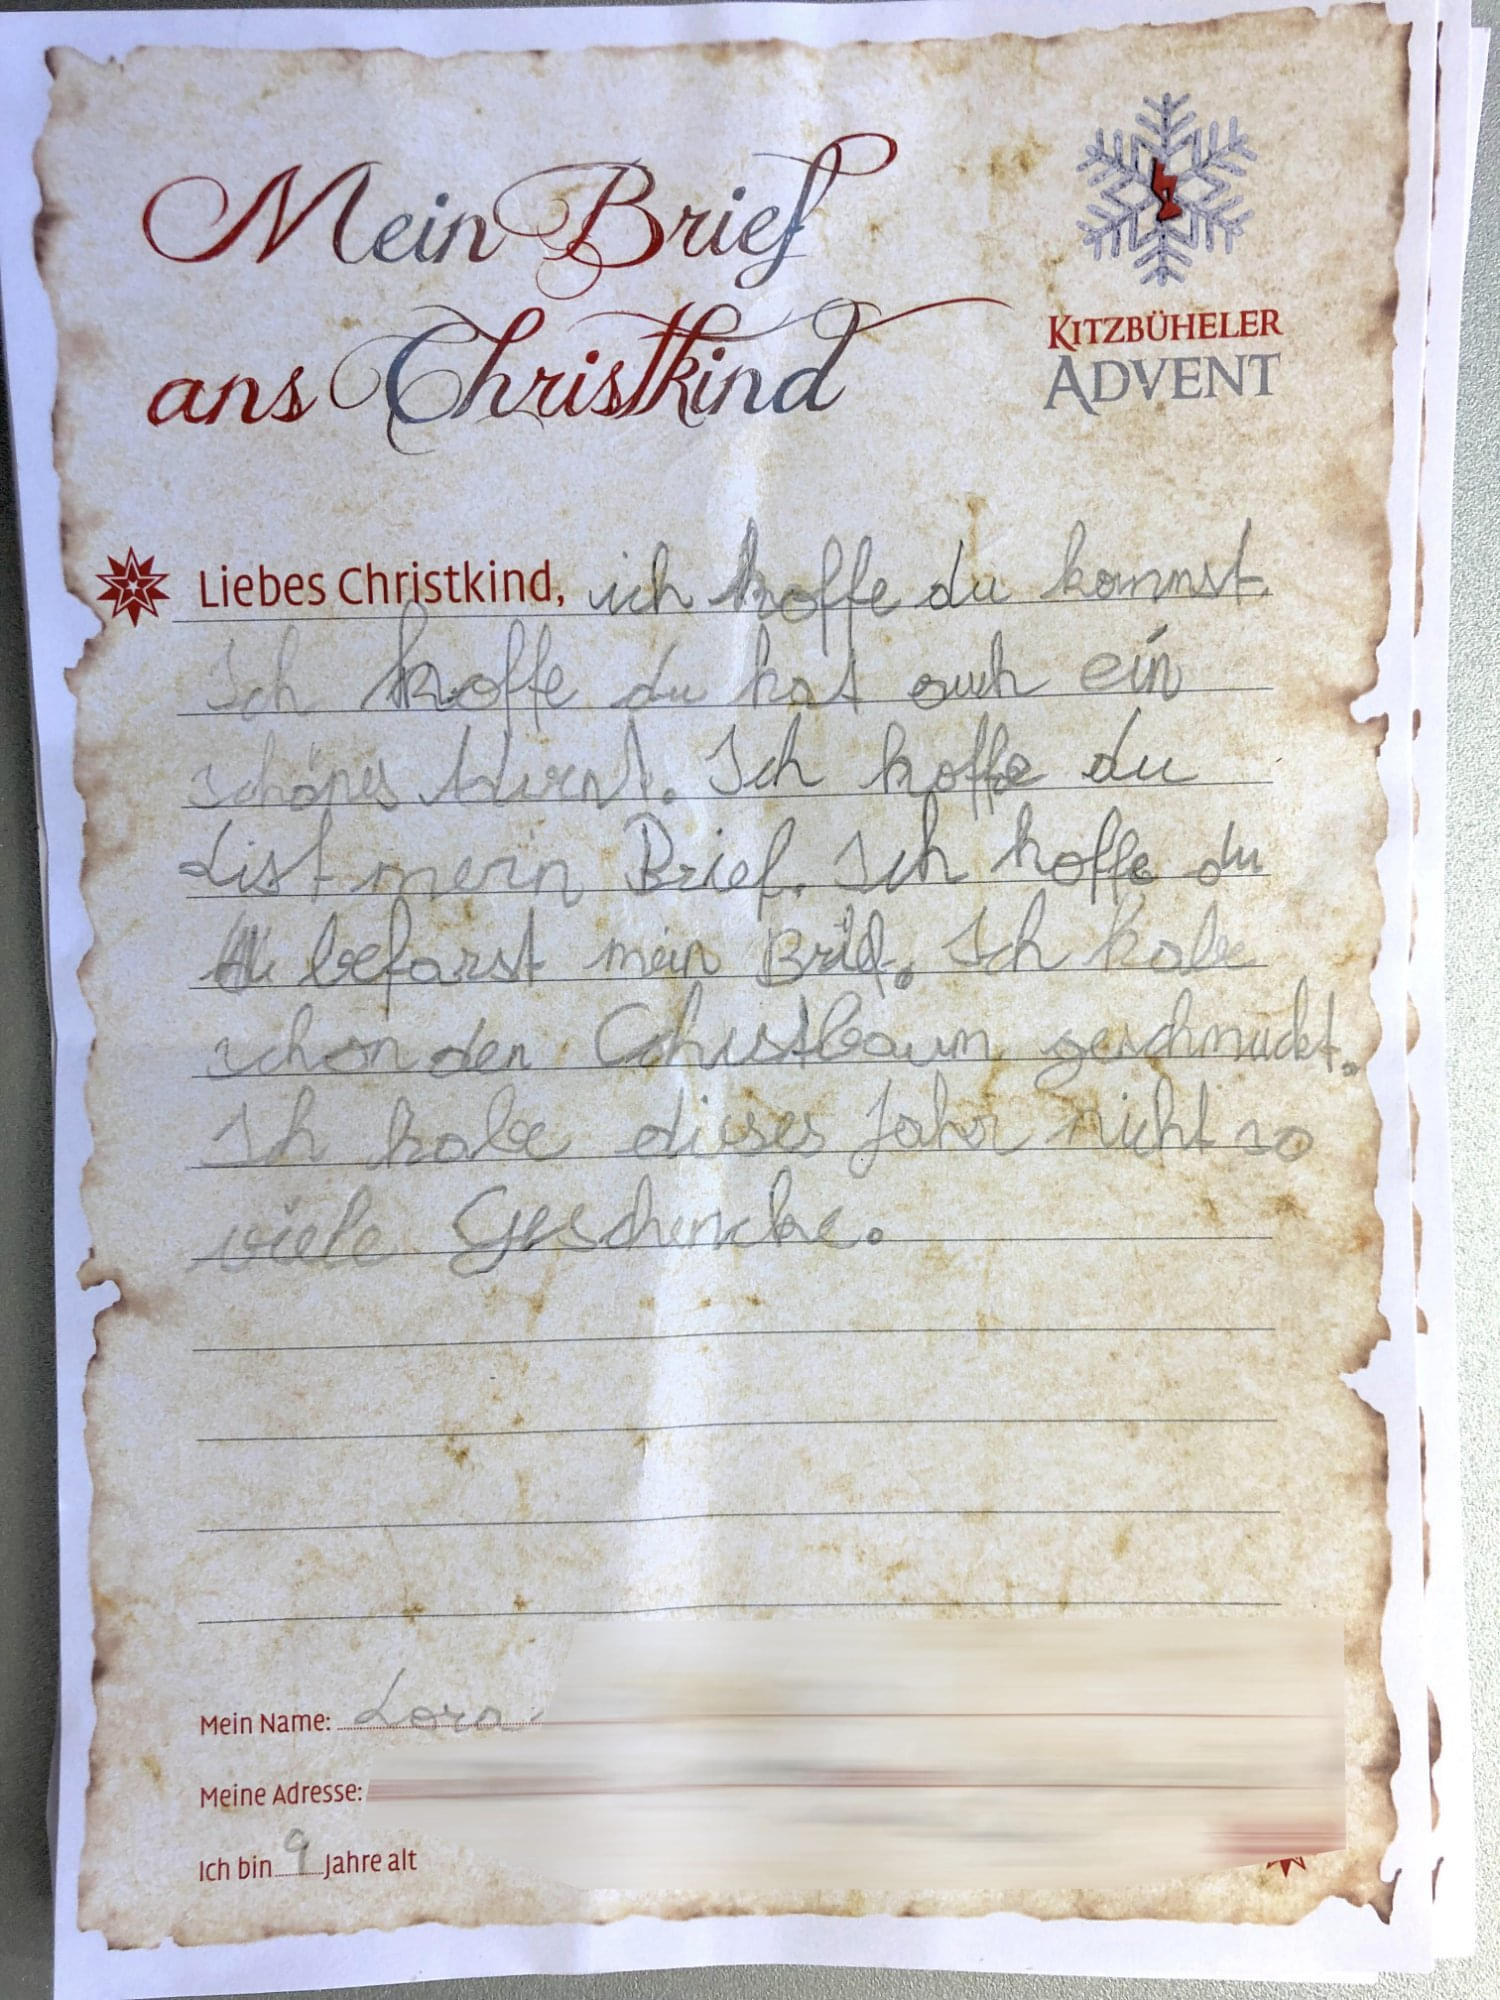 Mein Brief
ans Christkind
KITZBÜHELER
ADVENT
Liebes Christkind, ich hoffe du kommst.
Ich hoffe du hast auch ein
schönes
Ich hoffe du
List mein Brief. Ich hoffe du
mein Brief. Ich habe
schon den Christbaum geschmückt.
Ich habe dieses Jahr nicht so
viele Geschencke.
Mein Name: Lora
Meine Adresse:
Ich bin 9 Jahre alt